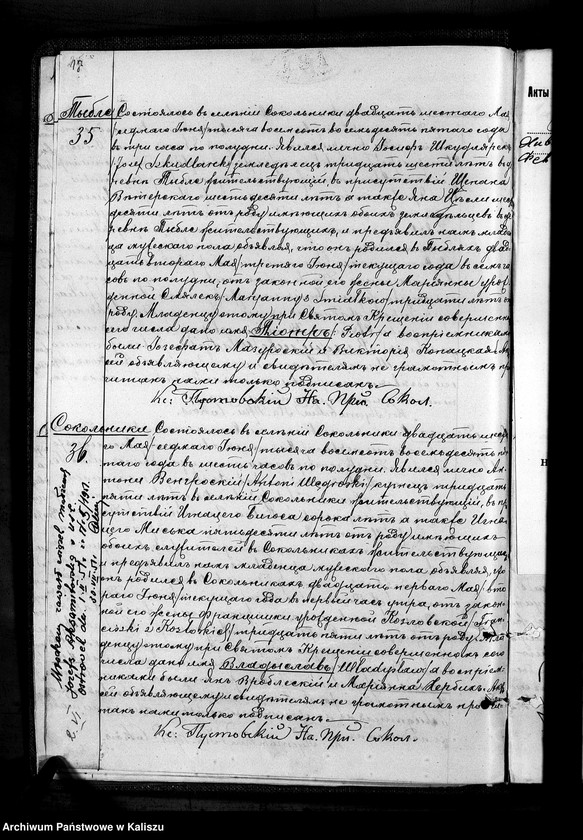 Тыбле Состоялось въ селеніи Сокольники двадцать шестаго Мая
35 /седьмаго Іюня/ тысяча восемьсотъ восемьдесятъ пятаго года
въ три часа по полудни. Явился лично Іосифъ Шкудлярекъ
/Josef Szkudlarek/ земледѣлецъ тридцать шести лѣтъ въ де-
ревнѣ Тыбле жительствующій, въ присутствіи Щепана
шестьдесяти лѣтъ а также Яна
десяти лѣтъ отъ роду имѣющихъ обоихъ земледѣльцевъ въ де-
ревнѣ Тыбле жительствующихъ, и предъявилъ намъ младен-
ца мужескаго пола объявляя, что онъ родился въ Тыбляхъ двад-
цать втораго Мая /третяго Іюня/ текущаго года въ
совъ по полудни, отъ законной его жены Маріянны урож-
денной Смялекъ /Maryanny z Smiałków/ тридцати лѣтъ отъ
роду. Младенцу этому при Святомъ Крещеніи совершенномъ
его числа дано имя Піотръ /Piotr/ а воспріемниками
были Мазуровскій и Викторія Копацкая. Актъ
сей объявляющему и свидѣтелямъ не грамотнымъ про-
читанъ нами только подписанъ.
Кс: Пустовскій На. При. Сокол.
Сокольники Состоялось въ селеніи Сокольники двадцать шес-
36. го Мая /седьмаго Іюня/ тысяча восемьсотъ восемьдесятъ пя-
таго года въ шесть часовъ по полудни. Явился лично Ан-
тоній Венгроскій /Antoni Węgroski/ кузнецъ тридцать
пяти лѣтъ въ селеніи Сокольники жительствующій, въ при-
сутствіи сорока лѣтъ а также Игна-
цаго пятьдесяти лѣтъ отъ роду имѣющихъ
обоихъ служителей въ Сокольникахъ жительствующихъ
и предъявилъ намъ младенца мужескаго пола объявляя, что
онъ родился въ Сокольникахъ двадцать перваго Мая /вто-
раго Іюня/ текущаго года въ первый часъ утра, отъ закон-
ной его жены Францишки урожденной Козловской /Fran-
ciszki z Kozłowskich/ тридцати пяти лѣтъ отъ роду. Мла-
денцу этому при Святомъ Крещеніи совершенномъ сего
числа дано имя Владыславъ /Władysław/ а воспріем-
никами были Янъ Врублескій и Маріянна Кербикъ. Актъ
сей объявляющему и свидѣтелямъ не грамотнымъ прочи-
танъ нами только подписанъ.
Кс: Пустовскій На. При. Сокол.
Акты
Archiwum Państwowe w Kaliszu